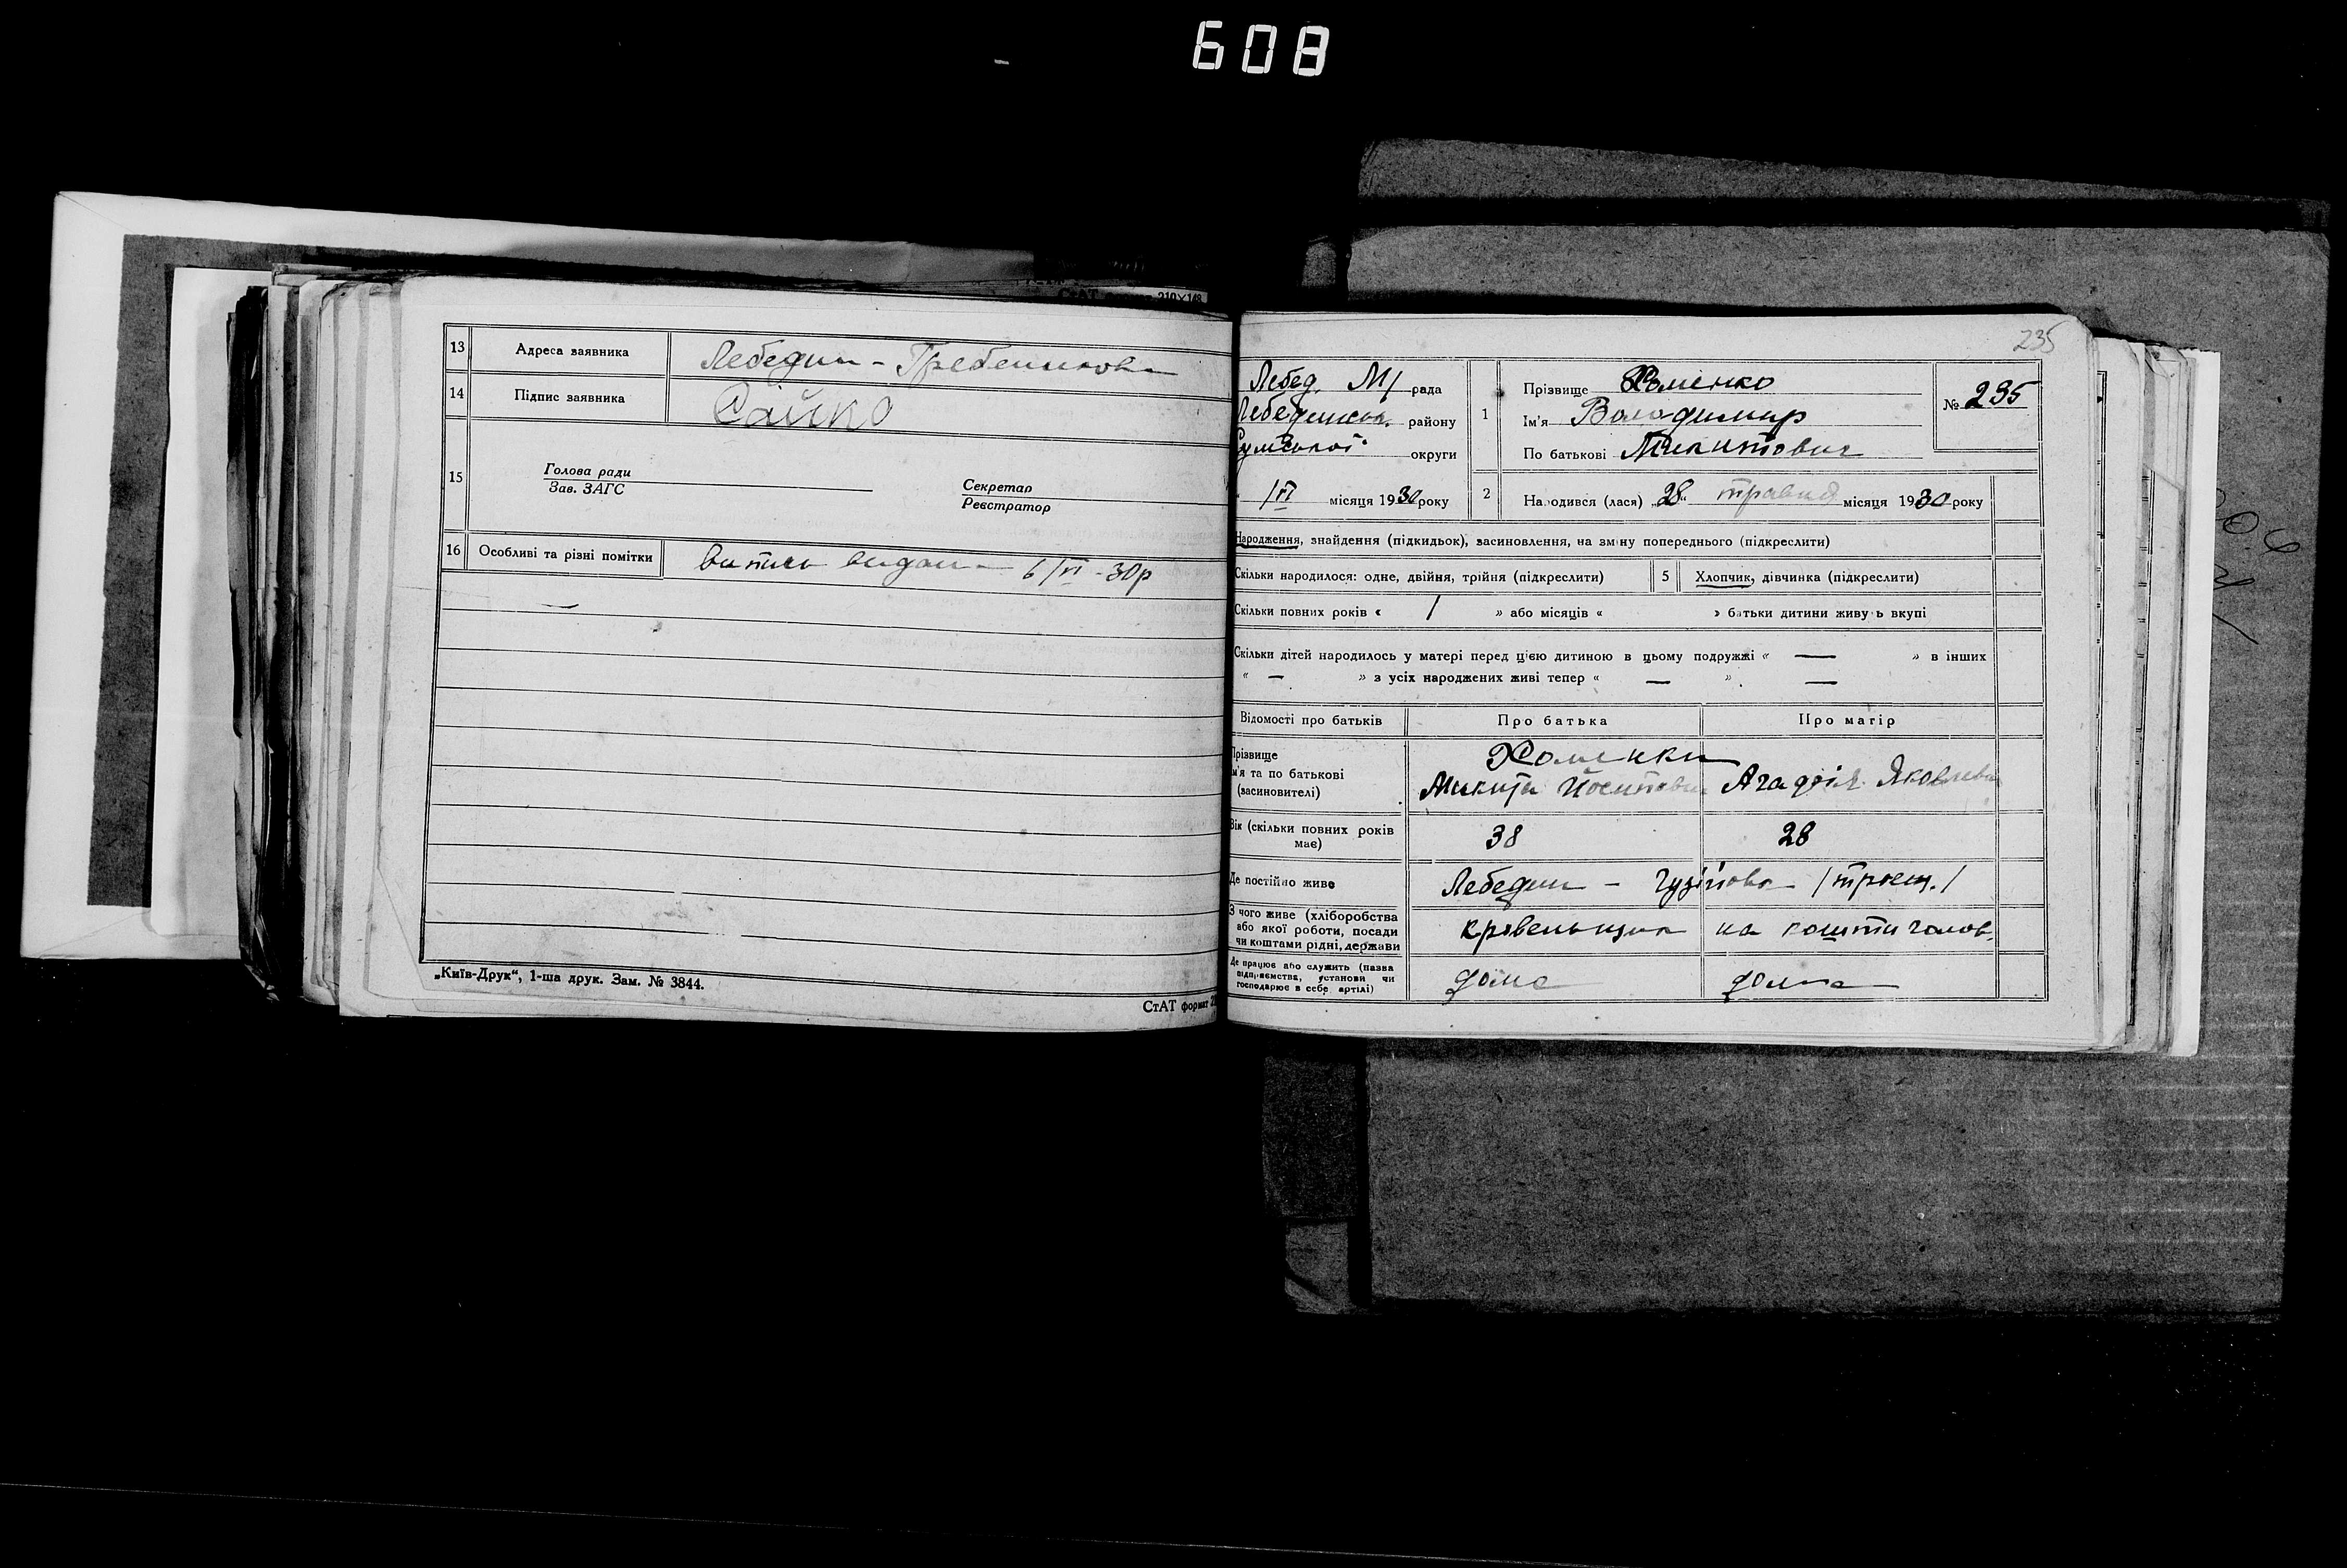 608
СтАТ формат 210×148
13 Адреса заявника Лебедин - Гребенникова
14 Підпис заявника Сайко
15 Голова ради
Зав. ЗАГС
Секретар
Реєстратор
16 Особливі та різні помітки витись видан 6/VI - 30р
„Київ-Друк“, 1-ша друк. Зам. № 3844.
СтАТ формат
235
Лебед. М/ рада
Лебединськ. району
Сумської округи
1 Прізвище Хоменко
Ім'я Володимир
По батькові Микитович
№ 235
1/VI місяця 1930 року
2 Народився (лася) „28“ травня місяця 1930 року
Народження, знайдення (підкидьок), васиновлення, на зміну попереднього (підкреслити)
Скільки народилося: одне, двійня, трійня (підкреслити) 5 Хлопчик, дівчинка (підкреслити)
Скільки повних років « 1 » або місяців « » батьки дитини живуть вкупі
Скільки дітей народилось у матері перед цією дитиною в цьому подружжі « — » в інших
« — » з усіх народжених живі тепер « — » —
Відомості про батьків Про батька Про матір
Прізвище
ім'я та по батькові
(васиновителі)
Хоменки
Микита Йосипович Агафія Яковлевн
Вік (скільки повних років
має) 38 28
Де постійно живе Лебедин -
З чого живе (хліборобства
або якої роботи, посади
чи коштами рідні, держави
кровельщик на кошти чолов.
Де працює або служить (назва
підприємства, установи чи
господарює в себе, артілі)
дома дома